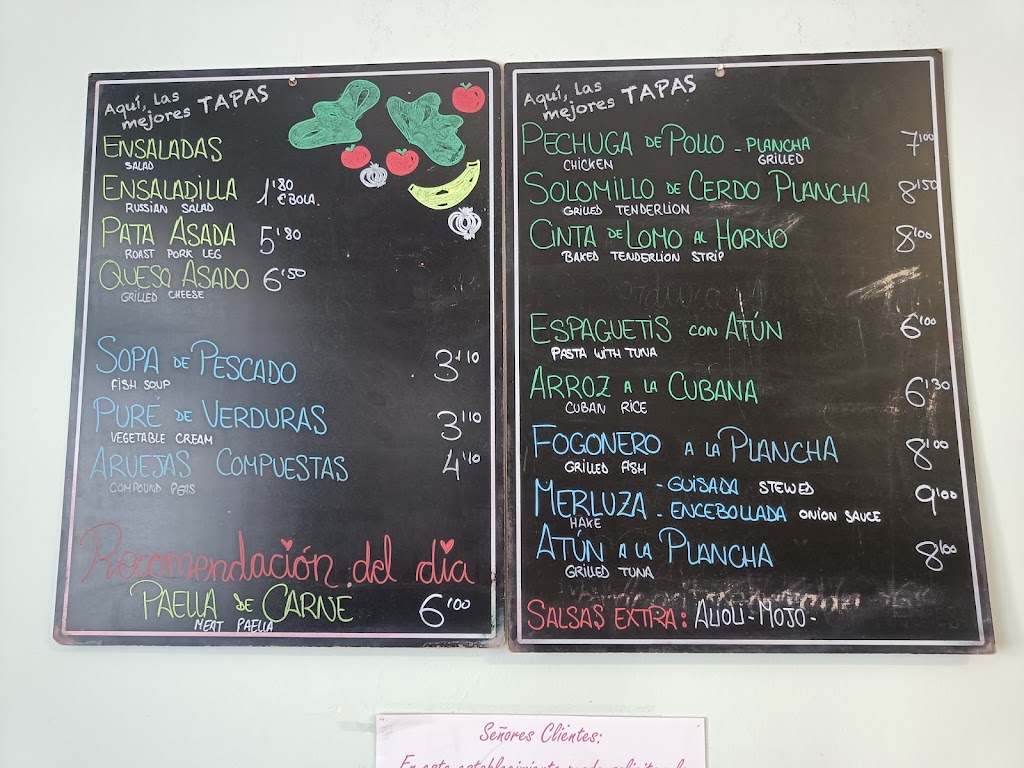 Aquí, Las
mejores TAPAS
ENSALADAS
SALAD
ENSALADILLA 1'80
RUSSIAN SALAD €BOLA.
PATA ASADA 5'80
ROAST PORK LEG
QUESO ASADO 6'50
GRILLED CHEESE
SOPA DE PESCADO 3'10
FISH SOUP
PURÉ DE VERDURAS 3'10
VEGETABLE CREAM
ARVEJAS COMPUESTAS 4'10
COMPOUND PEAS
Recomendación del día
PAELLA DE CARNE 6'00
MEAT PAELLA
Aquí, Las
mejores TAPAS
PECHUGA DE POLLO - PLANCHA 7'00
CHICKEN GRILLED
SOLOMILLO DE CERDO PLANCHA 8'50
GRILLED TENDERLION
CINTA DE LOMO AL HORNO 8'00
BAKED TENDERLION STRIP
ESPAGUETIS CON ATÚN 6'00
PASTA WITH TUNA
ARROZ A LA CUBANA 6'30
CUBAN RICE
FOGONERO A LA PLANCHA 8'00
GRILLED FISH
MERLUZA - GUISADA STEWED 9'00
HAKE - ENCEBOLLADA ONION SAUCE
ATÚN A LA PLANCHA 8'00
GRILLED TUNA
SALSAS EXTRA: ALIOLI - MOJO -
Señores Clientes:
En este establecimiento